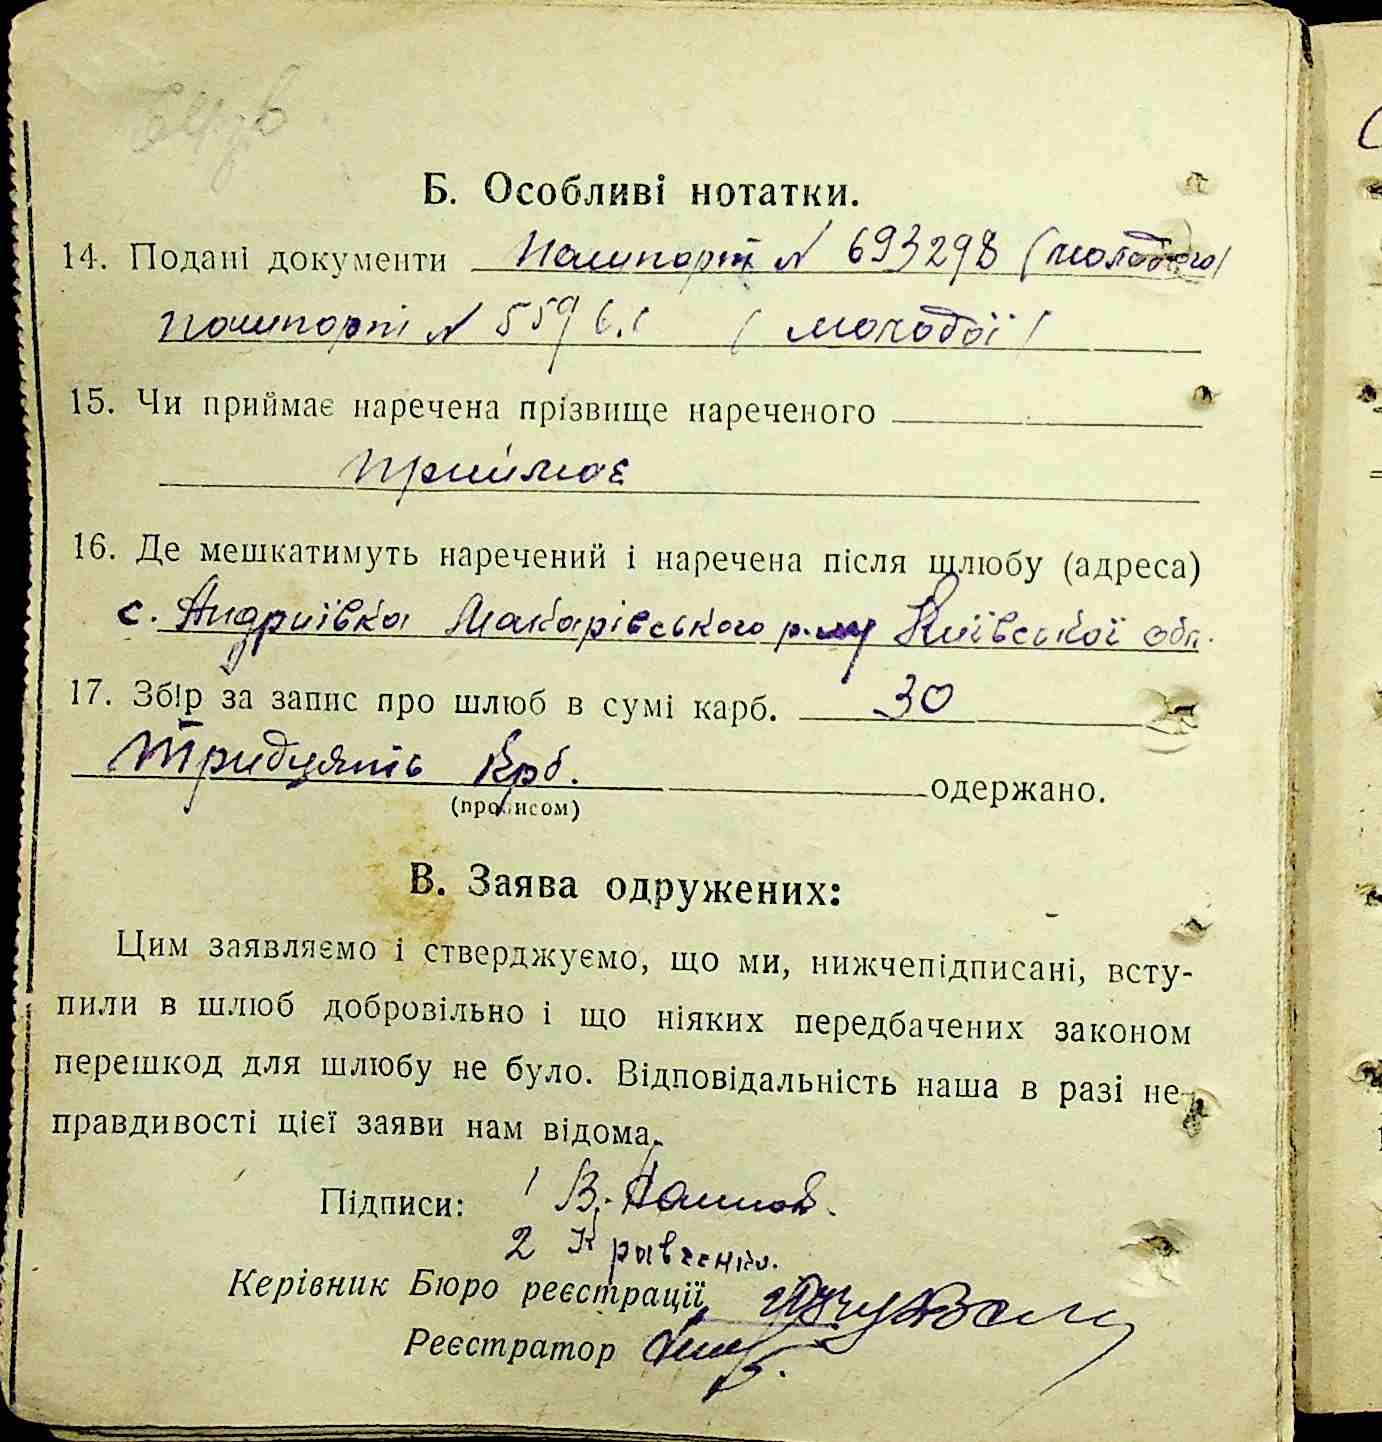 Б. Особливі нотатки.
14. Подані документи Пашпорт N 693298 (молодого)
пашпорт N 5596.1 (молодої)
15. Чи приймає наречена прізвище нареченого
приймає
16. Де мешкатимуть наречений і наречена після шлюбу (адреса)
с. Андриївка Макарівського р-ну Київської обл.
17. Збір за запис про шлюб в сумі карб. 30
Тридцять крб. одержано.
(прописом)
В. Заява одружених:
Цим заявляємо і стверджуємо, що ми, нижчепідписані, всту-
пили в шлюб добровільно і що ніяких передбачених законом
перешкод для шлюбу не було. Відповідальність наша в разі не-
правдивості цієї заяви нам відома.
Підписи: 1 В.
2 Кравченко.
Керівник Бюро реєстрації
Реєстратор